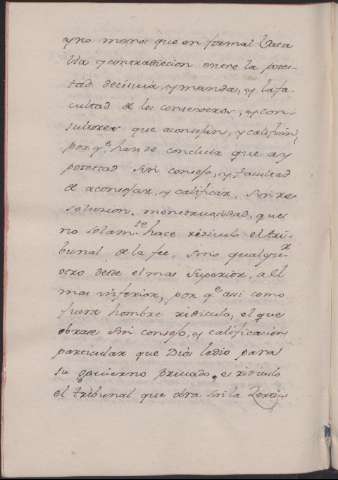 y no menos que en formal
lla y contradiccion entre la potes-
tad decisiva, y manda, y la fa-
cultad de los consejeros, y con-
sultores que aconsejan, y califican,
por q.e han de concluir que ay
potestad sin consejo, y facultad
de aconsejar, y calificar, sin re-
solucion, monstruosidad, que
no solam.te hace ridiculo el tri-
bunal de la fee, sino qualquier
otro desde el mas superior, a el
mas inferior, por q.e asi como
fuera hombre ridiculo, el que
obrase sin consejo, y calificacion
particular que Dios le dio para
su govierno privado, es ridiculo
el tribunal que obra sin la